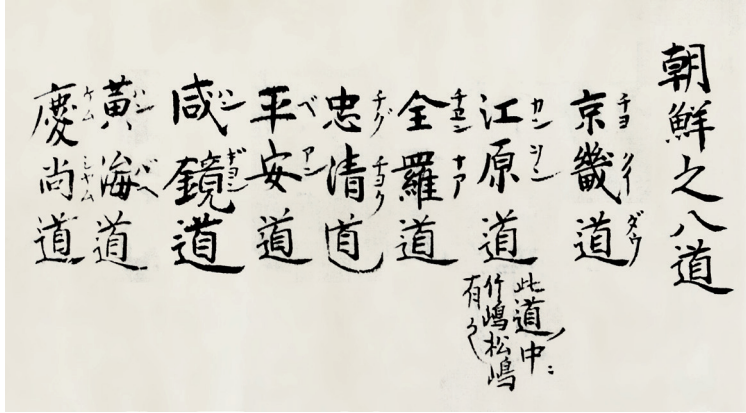 朝鮮之八道
京畿道
チヨ クイ ダウ
江原道
カン
此道ノ中ニ
竹嶋松嶋
有之
全羅道
ナア
忠清道
チグ チヨク
平安道
ベ アン
咸鏡道
ハン ギヨン
黄海道
ハン
慶尚道
ケム シヤム